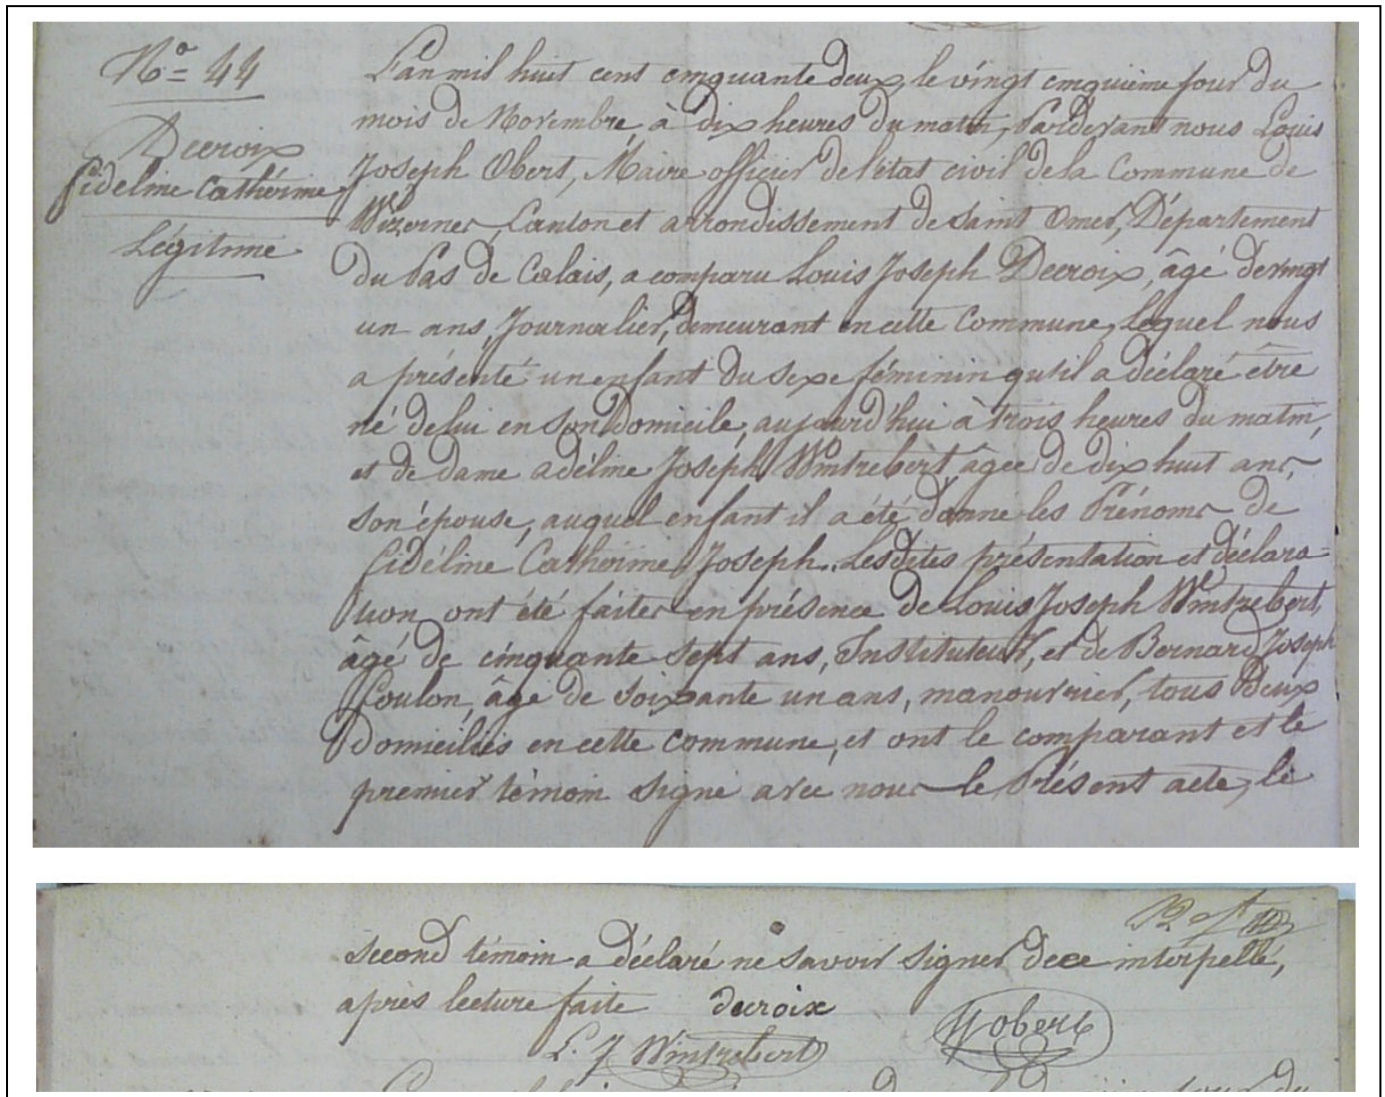 N° 44
Decroix
fidéline Cathérine
Légitime
L'an mil huit cent cinquante deux, le vingt cinquième jour du
mois de Novembre, à dix heures du matin, Pardevant nous Louis
Joseph Obert, Maire officier de l'état civil de la Commune de
Wizernes, Canton et arrondissement de Saint Omer, Département
du Pas de Calais, a comparu Louis Joseph Decroix, âgé de vingt
un ans, Journalier, demeurant en cette Commune, Lequel nous
a présenté un enfant du sexe féminin qu'il a déclaré être
né de lui en son Domicile, aujourd'hui à trois heures du matin,
et de dame adéline Joseph Wintrebert, âgée de dix huit ans,
son épouse, auquel enfant il a été donné les Prénoms de
fidéline Cathérine Joseph. Lesdites présentation et déclara-
tion ont été faites en présence de Louis Joseph Wintrebert,
âgé de cinquante sept ans, Instituteur, et de Bernard Joseph
Coulon, âgé de soixante un ans, manouvrier, tous deux
Domiciliés en cette commune, et ont le comparant et le
premier témoin signé avec nous le Présent acte, le
second témoin a déclaré ne savoir signer de ce interpellé,
après lecture faite decroix
L. J. Wintrebert
LJobert